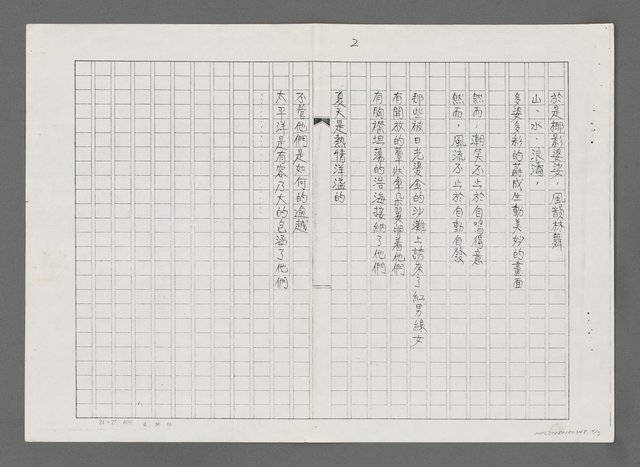 2
於是椰影婆娑,風韻林舞
山、水、浪濤,
多姿多彩的蔚成生動美妙的畫面
然而,潮笑不止於自鳴得意
然而,風流不止於自動自發
那些被日光燙金的沙灘上請來了紅男綠女
有開放的蕈狀傘朵翼翼著他們
有胸襟坦蕩的浩海接納了他們
夏天是熱情洋溢的
不管他們是如何的逾越
太平洋是有容乃大的包涵了他們
24×25=600